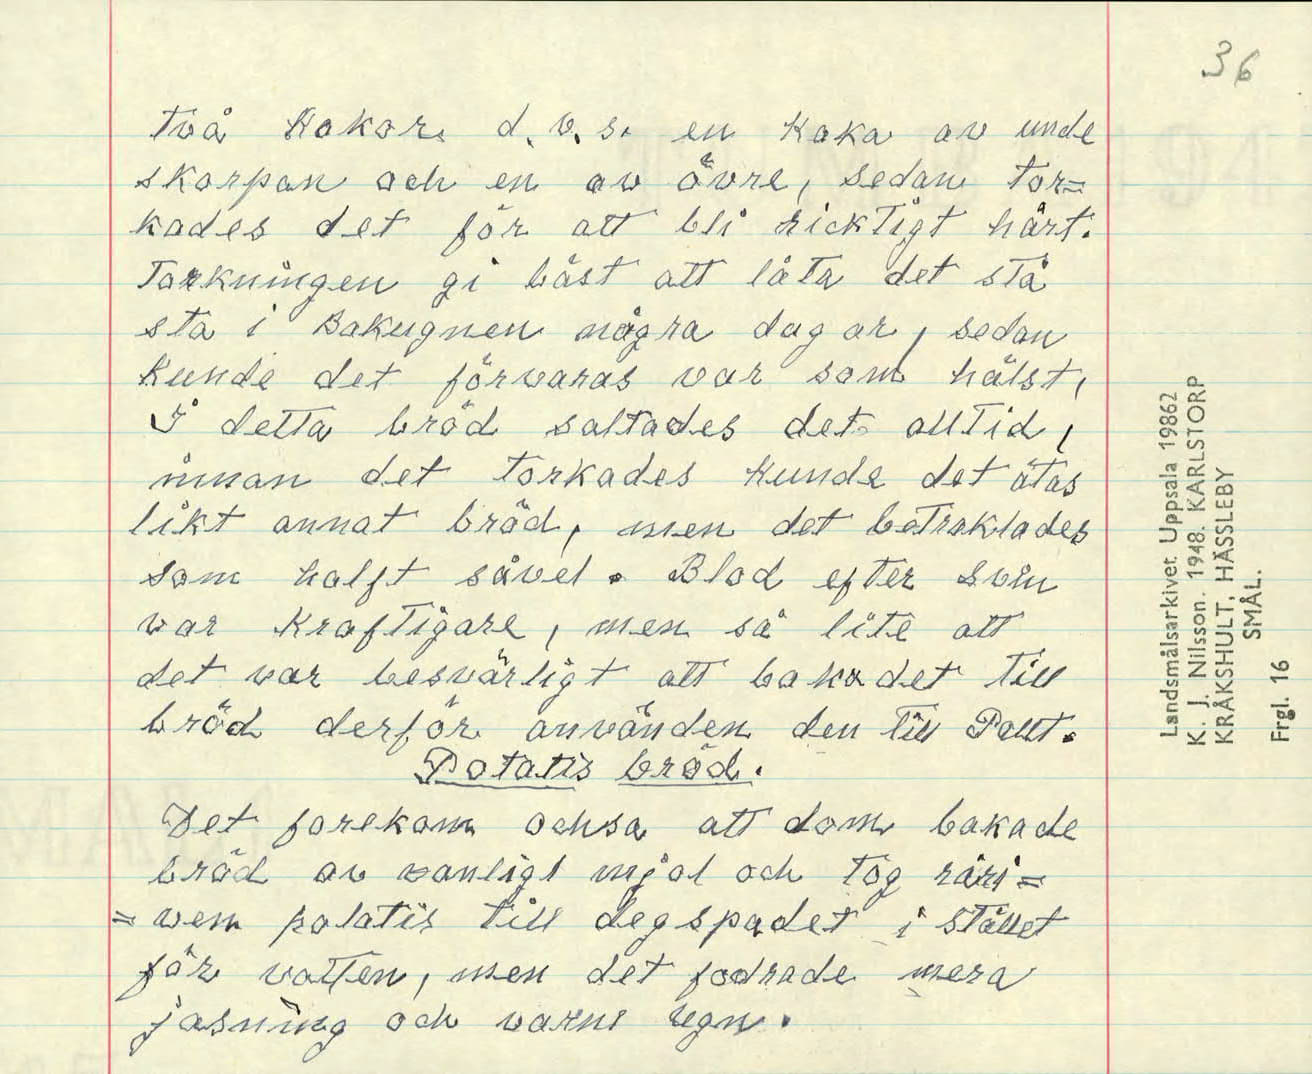 36
två Kakor. d.v.s. en Kaka av unde
skorpan och en av övre, sedan tor=
kades det för att bli ricktigt hårt.
Torkningen gi bäst att låta det stå
sta i Bakugnen några dagar, sedan
Kunde det förvaras var som hälst,
I detta bröd saltades det alltid,
innan det torkades Kunde det ätas
likt annat bröd, men det betraktades
som halft såvel. Blod efter svin
var Kraftigare, men så lite att
det var besvärligt att baka det till
bröd derför använden den till Pallt.
Potatis bröd.
Det forekom ochsa att dom bakade
bröd av vanligt mjöl och tog råri=
=ven potatis till degspadet i stället
för vatten, men det fodrade mera
jäsning och varm ugn.
Landsmålsarkivet Uppsala 19862
K. J. Nilsson. 1948. KARLSTORP
KRÅKSHULT, HÄSSLEBY
SMÅL.
Frgl. 16